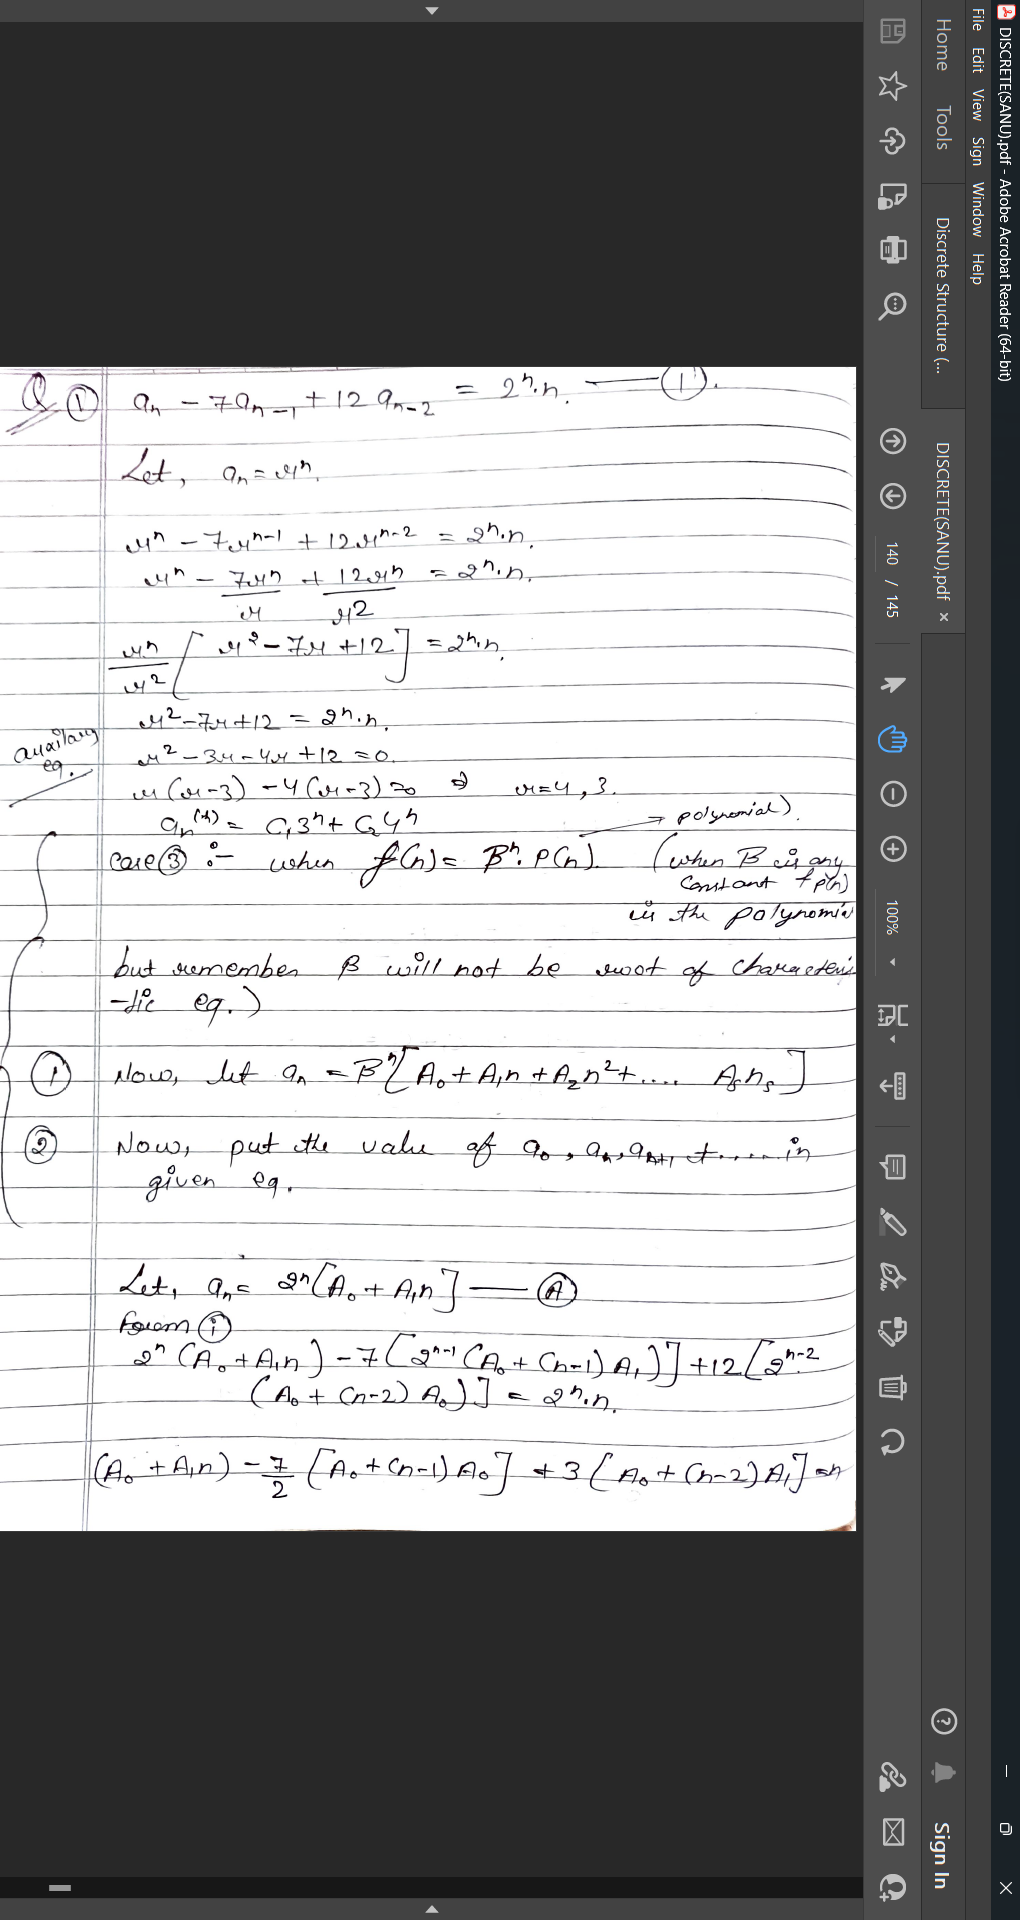 DISCRETE(SANU).pdf - Adobe Acrobat Reader (64-bit)
File Edit View Sign Window Help
Home Tools Discrete Structure (... DISCRETE(SANU).pdf × Sign In
140 / 145 100%
Q ① aₙ - 7aₙ₋₁ + 12aₙ₋₂ = 2ⁿ.n. — ①.
Let, aₙ = rⁿ.
rⁿ - 7rⁿ⁻¹ + 12rⁿ⁻² = 2ⁿ.n.
rⁿ - 7rⁿ/r + 12rⁿ/r² = 2ⁿ.n.
rⁿ/r² [r² - 7r + 12] = 2ⁿ.n.
r² - 7r + 12 = 2ⁿ.n.
auxilary eq. r² - 3r - 4r + 12 = 0.
r(r-3) - 4(r-3) = 0 ⇒ r = 4, 3.
aₙ⁽ʰ⁾ = C₁3ⁿ + C₂4ⁿ → polynomial).
case ③ :- when f(n) = Bⁿ. P(n). (when B is any
constant & p(n)
is the polynomia
but remember B will not be root of characteris
-tic eq.)
① Now, let aₙ = Bⁿ[A₀ + A₁n + A₂n² + .... Aₛnₛ]
② Now, put the value of a₀, aₙ, aₙ₊₁ + ..... in
given eq.
Let, aₙ = 2ⁿ[A₀ + A₁n] — Ⓐ
From ①
2ⁿ(A₀ + A₁n) - 7[2ⁿ⁻¹(A₀ + (n-1)A₁)] + 12[2ⁿ⁻².
(A₀ + (n-2)A₀)] = 2ⁿ.n.
(A₀ + A₁n) - 7/2 [A₀ + (n-1)A₀] + 3[A₀ + (n-2)A₁] = n